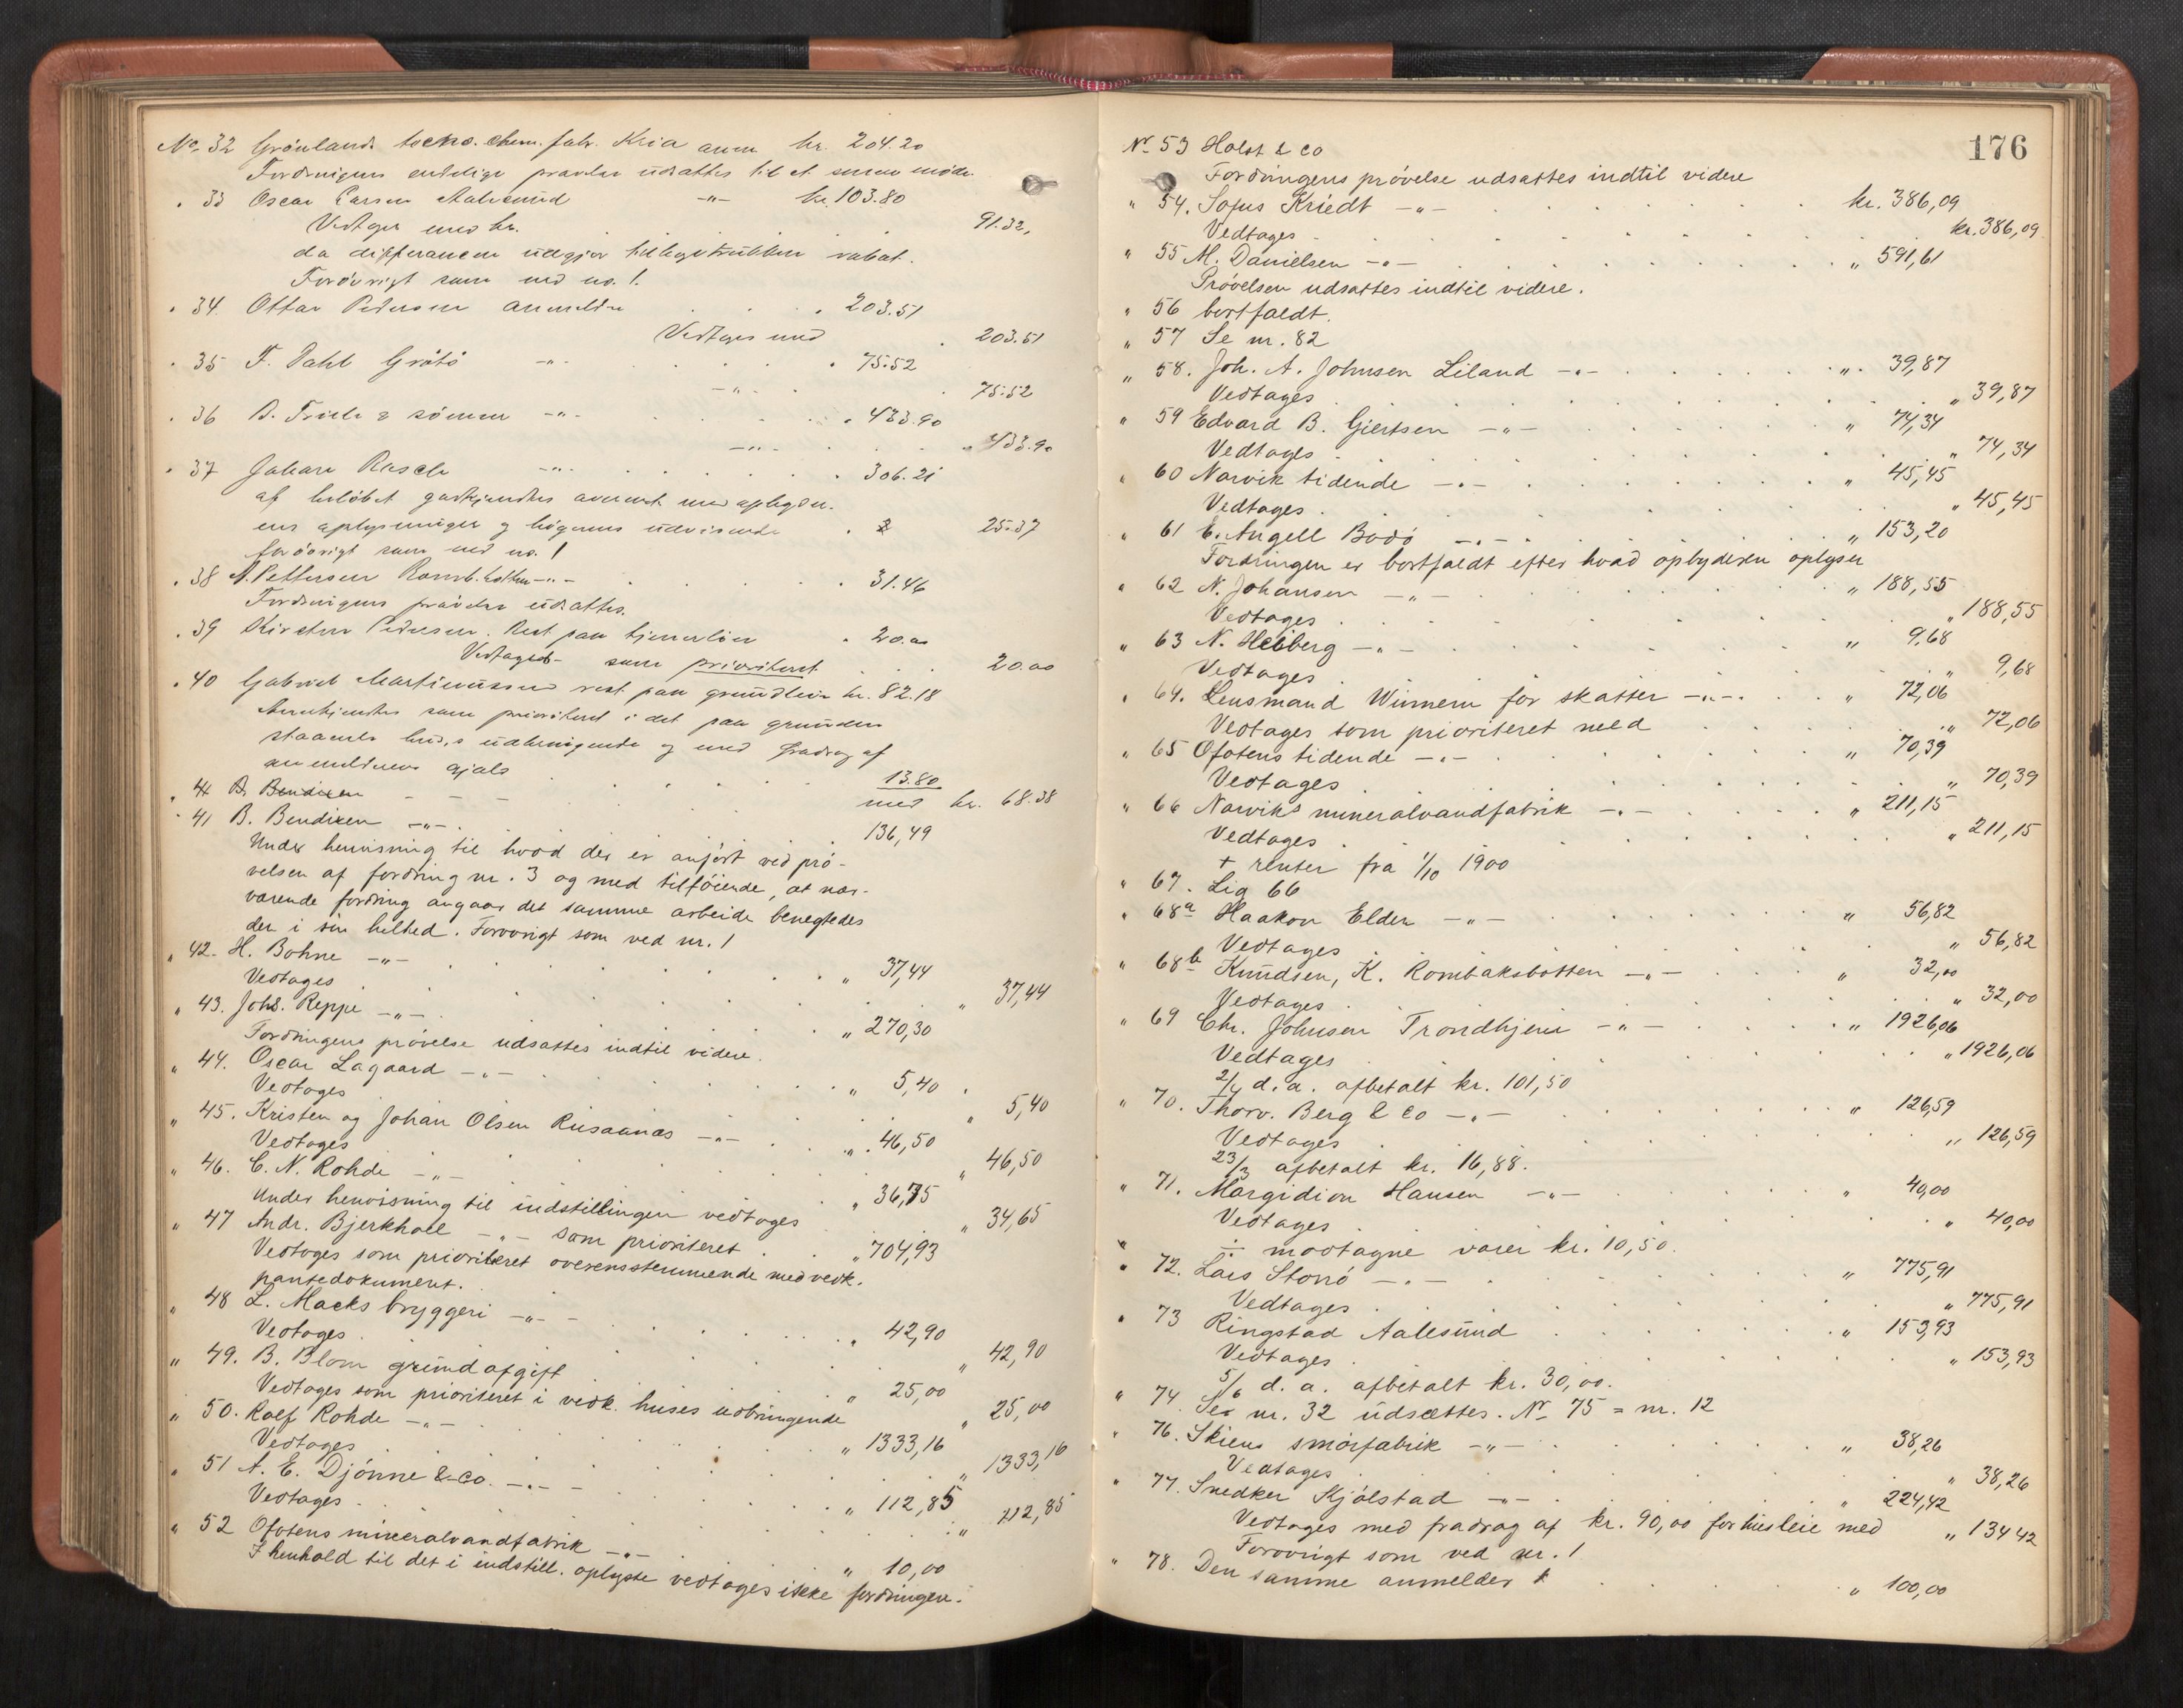 No. 32 Grönlands techno. chem. fabr. Kria anm kr. 204.20
Fordringens endelige prøvelse udsættes til et senere møde
" 33 Oscar Larsen Aalesund -"- kr. 103.80
Vedtages med kr. 91.32,
da differancen udgjør tilbagetrukken rabat.
Forøvrigt som ved no. 1.
" 34 Ottar Pedersen anmelder 203.51
Vedtages med 203.51
" 35 F. Dahl Grøtö -"- 75.52
-"- 75.52
" 36 D. Friele & sönner -"- 433.90
-"- 433.90
" 37 Johan Rasch -"- 306.21
af beløbet godkjendes
ens oplysninger og bögernes udvisende 25.37
forøvrigt som ved no. 1
" 38 A. Pettersen Romb.botten -"- 31.46
Fordringens prøvelse udsættes.
" 39 Kirsten Pedersen. Rest paa tjenerløn " 20.00
Vedtages som prioriteret 20.00
" 40 Gabriel Martinussen rest paa grundleie kr. 82.18
Anerkjendes som prioriteret i det paa grunden
staaende hus,s udbringende og med fradrag af
anmelderens gjæld 13.80
med kr. 68.38
" 41 B. Bendixen - - -
" 41 B. Bendixen -"- 136,49
Under henvisning til hvad der er anført ved prö-
velsen af fordring nr. 3 og med tilföiende, at nær-
værende fordring angaar det samme arbeide benegtedes
den i sin helhed. Forøvrigt som ved nr. 1
" 42. H. Bohne -"- " 37,44
Vedtages " 37,44
" 43. Johs. Reppe -"- " 270,30
Fordringens prövelse udsættes indtil videre.
" 44. Oscar Lagaard -"- " 5,40
Vedtages " 5,40
" 45. Kristen og Johan Olsen Riisaanæs -"- " 46,50
Vedtages " 46,50
" 46. C. N. Rohde -"- " 36,75
Under henvisning til indstillingen vedtages " 34,65
" 47 Andr. Bjerkholl -"- som prioriteret " 704,93
Vedtages som prioriteret overensstemmende med vedk.
pantedokument.
" 48 L. Macks bryggeri -"- " 42,90
Vedtages " 42,90
" 49. B. Blom grundafgift " 25,00
Vedtages som prioriteret i vedk. huses udbringende " 25,00
" 50. Rolf Rohde -"- " 1333,16
Vedtages " 1333,16
" 51 A. E. Djönne & co. -"- " 112,85
Vedtages " 112,85
" 52 Ofotens mineralvandfabrik -"- " 10,00
I henhold til det i indstill. oplyste vedtages ikke fordringen.
176
Nr. 53 Holst & co
Fordringens prövelse udsættes indtil videre
" 54. Sofus Kriedt -"- kr. 386,09
Vedtages kr. 386,09
" 55 M. Danielsen -"- " 591,61
Prövelsen udsættes indtil videre.
" 56 bortfaldt.
" 57 Se nr. 82
" 58. Joh. A. Johnsen Liland -"- " 39,87
Vedtages " 39,87
" 59 Edvard B. Giertsen -"- " 74,34
Vedtages " 74,34
" 60 Narvik tidende -"- " 45,45
Vedtages " 45,45
" 61 E. Angell Bodö -"- " 153,20
Fordringen er bortfaldt efter hvad opbyderen oplyser
" 62 N. Johansen -"- " 188,55
Vedtages " 188,55
" 63 N. Heiberg -"- " 9,68
Vedtages " 9,68
" 64. Lensmand Winnem for skatter -"- " 72,06
Vedtages som prioriteret med " 72,06
" 65 Ofotens tidende -"- " 70,39
Vedtages " 70,39
" 66 Narviks mineralvandfabrik -"- " 211,15
Vedtages " 211,15
+ renter fra 1/10 1900
" 67. Lig 66
" 68a Haakon Elder -"- " 56,82
Vedtages " 56,82
" 68b Knudsen, K. Rombaksbotten -"- " 32,00
Vedtages " 32,00
" 69 Chr. Johnsen Trondhjem -"- " 1926,06
Vedtages " 1926,06
2/4 d. a. afbetalt kr. 101,50
" 70. Thorv. Berg & Co -"- " 126,59
Vedtages " 126,59
23/3 afbetalt kr. 16,88.
" 71. Margidion Hansen -"- " 40,00
Vedtages " 40,00
÷ modtagne varer kr. 10,50.
" 72. Lars Storrö -"- " 775,91
Vedtages " 775,91
" 73 Ringstad Aalesund " 153,93
Vedtages " 153,93
5/6 d. a. afbetalt kr. 30,00.
" 74. Se nr. 32 udsættes. Nr. 75 = nr. 12
" 76. Skiens smörfabrik -"- " 38,26
Vedtages " 38,26
" 77. Snedker Kjölstad -"- " 224,42
Vedtages med fradrag af kr. 90,00 for husleie med " 134 42
Forövrigt som ved nr. 1
" 78. Den samme anmelder " 100,00